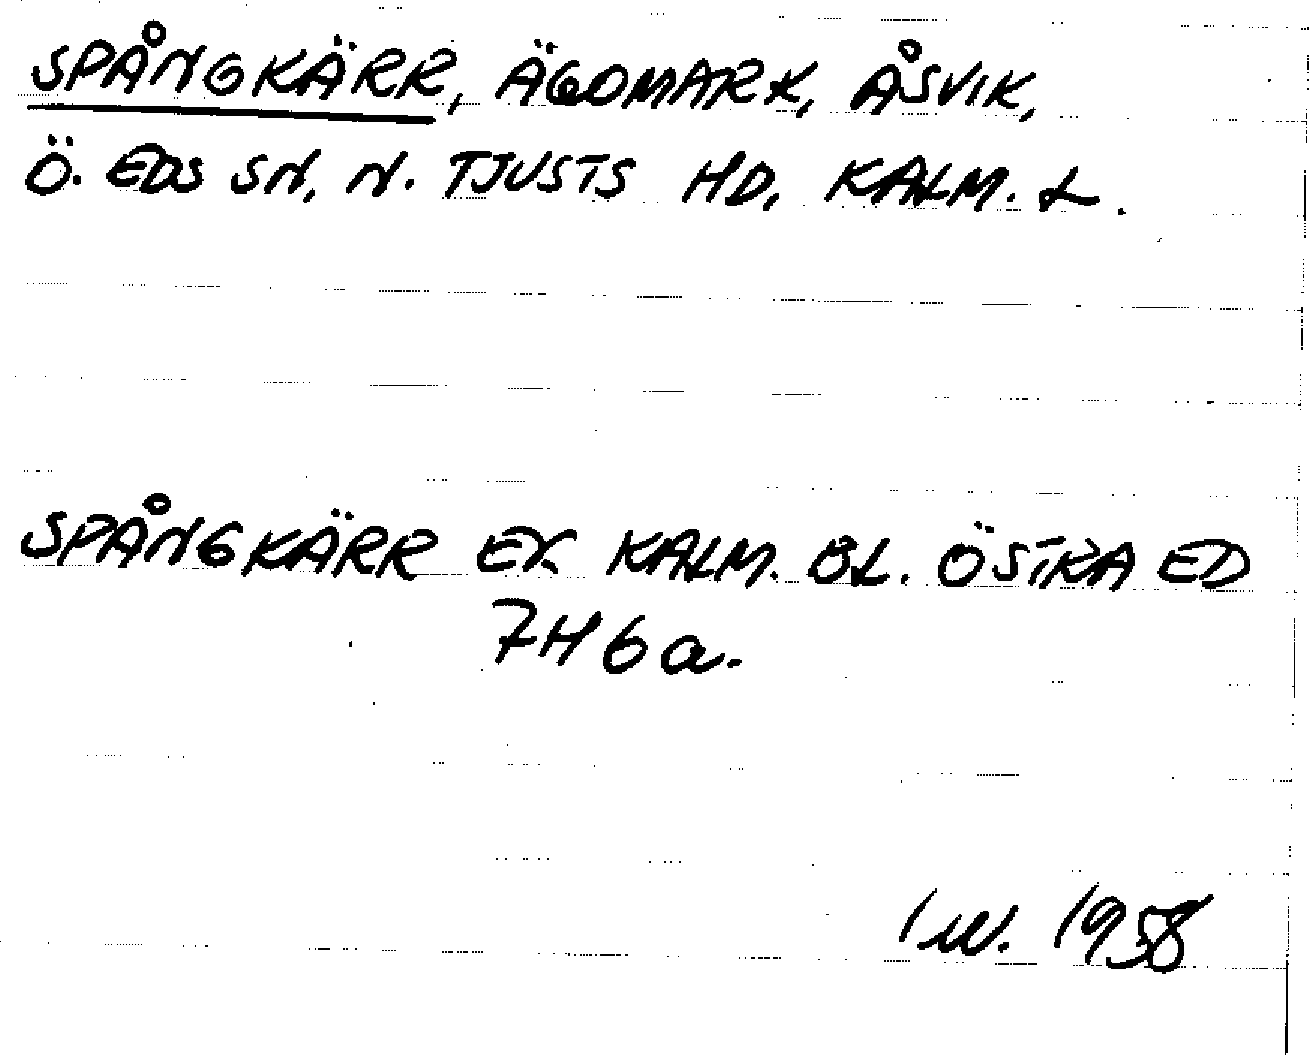 SPÅNGKÄRR, ÄGOMARK, ÅSVIK,
Ö. EDS SN, N. TJUSTS HD, KALM. L.
SPÅNGKÄRR EK KALM. BL. ÖSTRA ED
7H6a.
1958